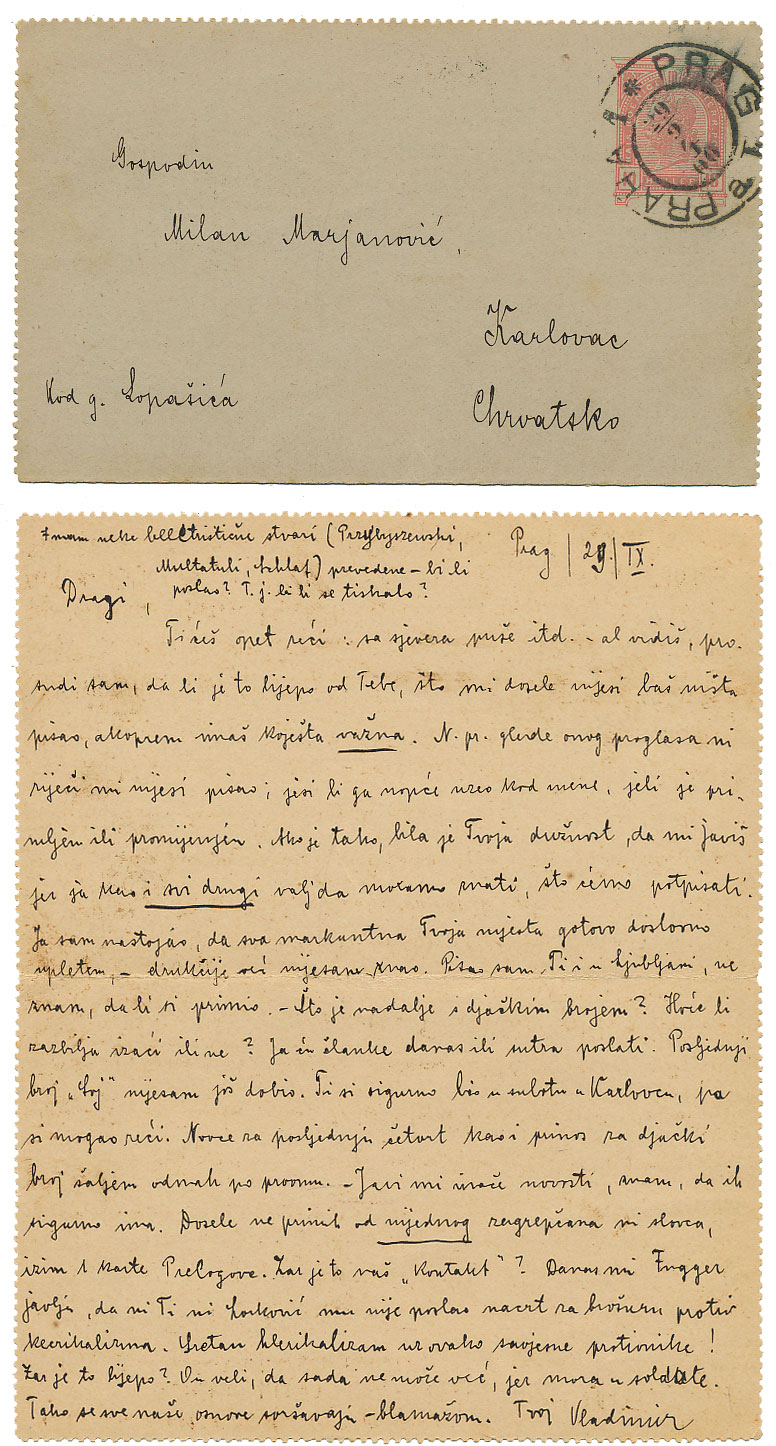 Gospodin
Milan Marjanović,
Karlovac
Kod g. Lopašića
Chrvatsko
PRAG 1
PRAHA 1
Imam neke belletristične stvari (Przybyszewski,
Prag | 29. | IX.
Multatuli, Schlaf) prevedene – bi li
poslao? T. j. bi li se tiskalo?
Dragi,
Ti ćeš opet reći: sa sjevera puše itd. – al vidiš, pro-
sudi sam, da li je to lijepo od Tebe, što mi dosele nijesi baš ništa
pisao, akoprem imaš koješta važna. N. pr. glede onog proglasa ni
riječi mi nijesi pisao; jesi li ga uopće uzeo kod mene, jeli je pri-
mljen ili promijenjen. Ako je tako, bila je Tvoja dužnost, da mi javiš
jer ja kao i svi drugi valjda moramo znati, što ćemo potpisati.
Ja sam nastojao, da sva markantna Tvoja mjesta gotovo doslovno
upletem, – drukčije već nijesam znao. Pisao sam Ti i u Ljubljani, ne
znam, da li si primio. – Što je nadalje s djačkim brojem? Hoće li
zazbilja izaći ili ne? Ja ću članke danas ili sutra poslati. Posljednji
broj „Svj“ nijesam još dobio. Ti si sigurno bio u subotu u Karlovcu, pa
si mogao reći. Novce za posljednju četvrt kao i prinos za djački
broj šaljem odmah po prvomu. – Javi mi inače novosti, znam, da ih
sigurno ima. Dosele ne primih od nijednog zagrepčana ni slovca,
izim 1 karte Prelogove. Zar je to vaš „kontakt“? Danas mi Fugger
javlja, da ni Ti ni Lorković mu nije poslao nacrt za brošuru protiv
klerikalizma. Sretan klerikalizam uz ovako savjesne protivnike!
Zar je to lijepo? On veli, da sada ne može već, jer mora u soldate.
Tako se sve naše osnove svršavaju – blamažom. Tvoj Vladimir